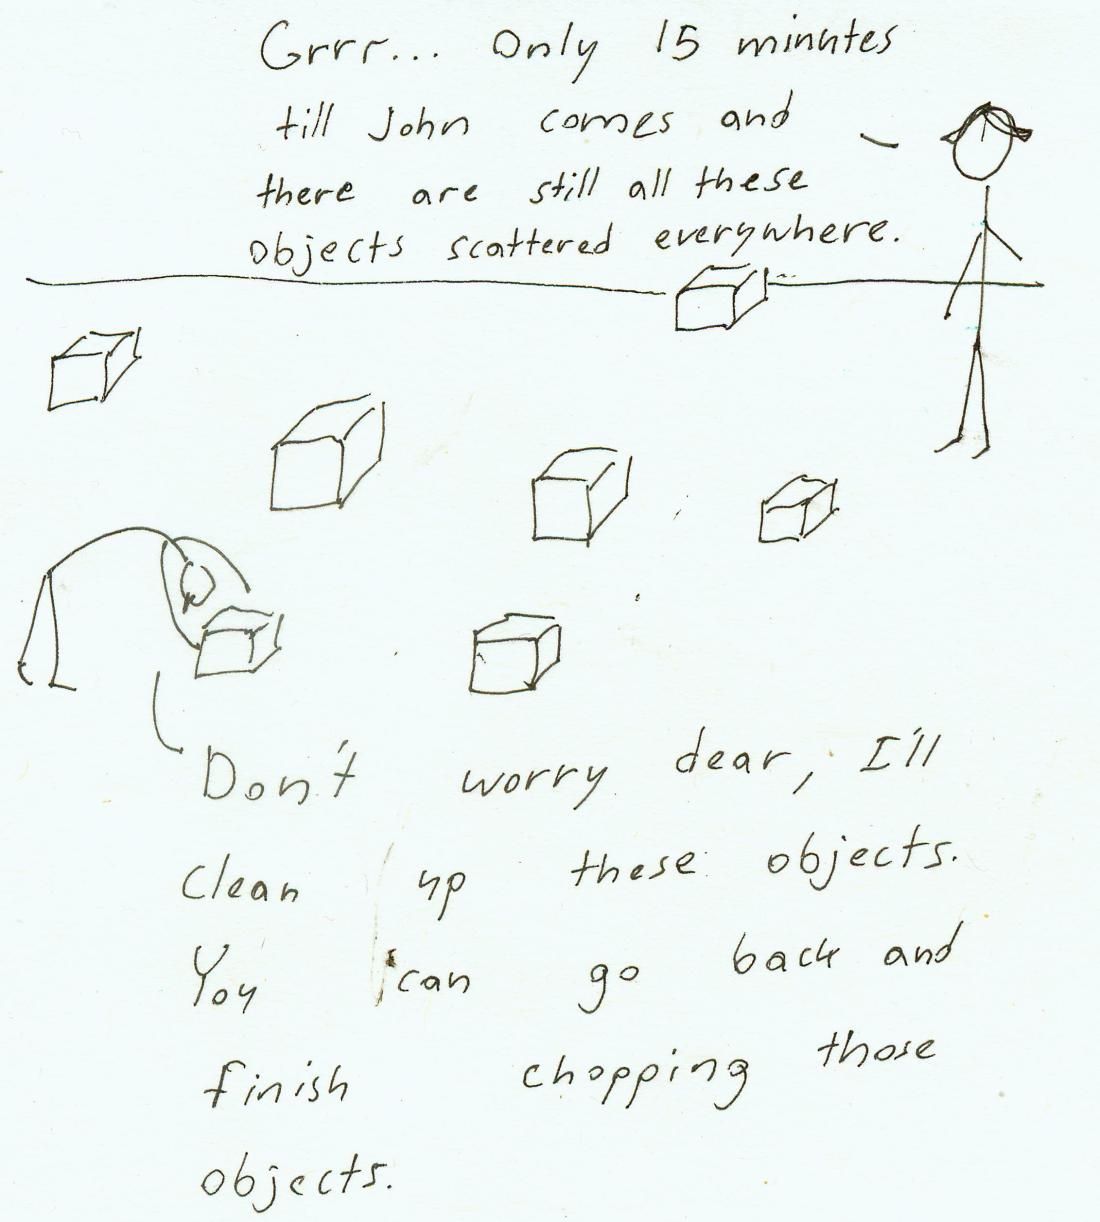 Grrr... Only 15 minutes
till John comes and
there are still all these
objects scattered everywhere.
Don't worry dear, I'll
clean up these objects.
You can go back and
finish chopping those
objects.